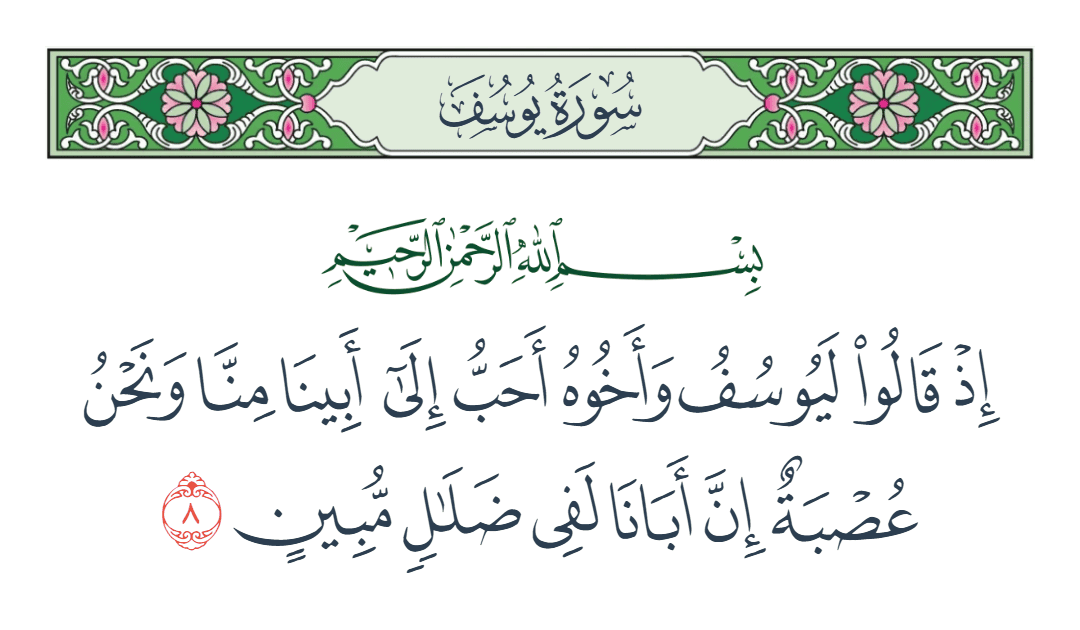 سُورَةُ يُوسُفَ
بِسْمِ ٱللَّهِ ٱلرَّحْمَٰنِ ٱلرَّحِيمِ
إِذْ قَالُوا۟ لَيُوسُفُ وَأَخُوهُ أَحَبُّ إِلَىٰٓ أَبِينَا مِنَّا وَنَحْنُ
عُصْبَةٌ إِنَّ أَبَانَا لَفِى ضَلَـٰلٍ مُّبِينٍ ٨